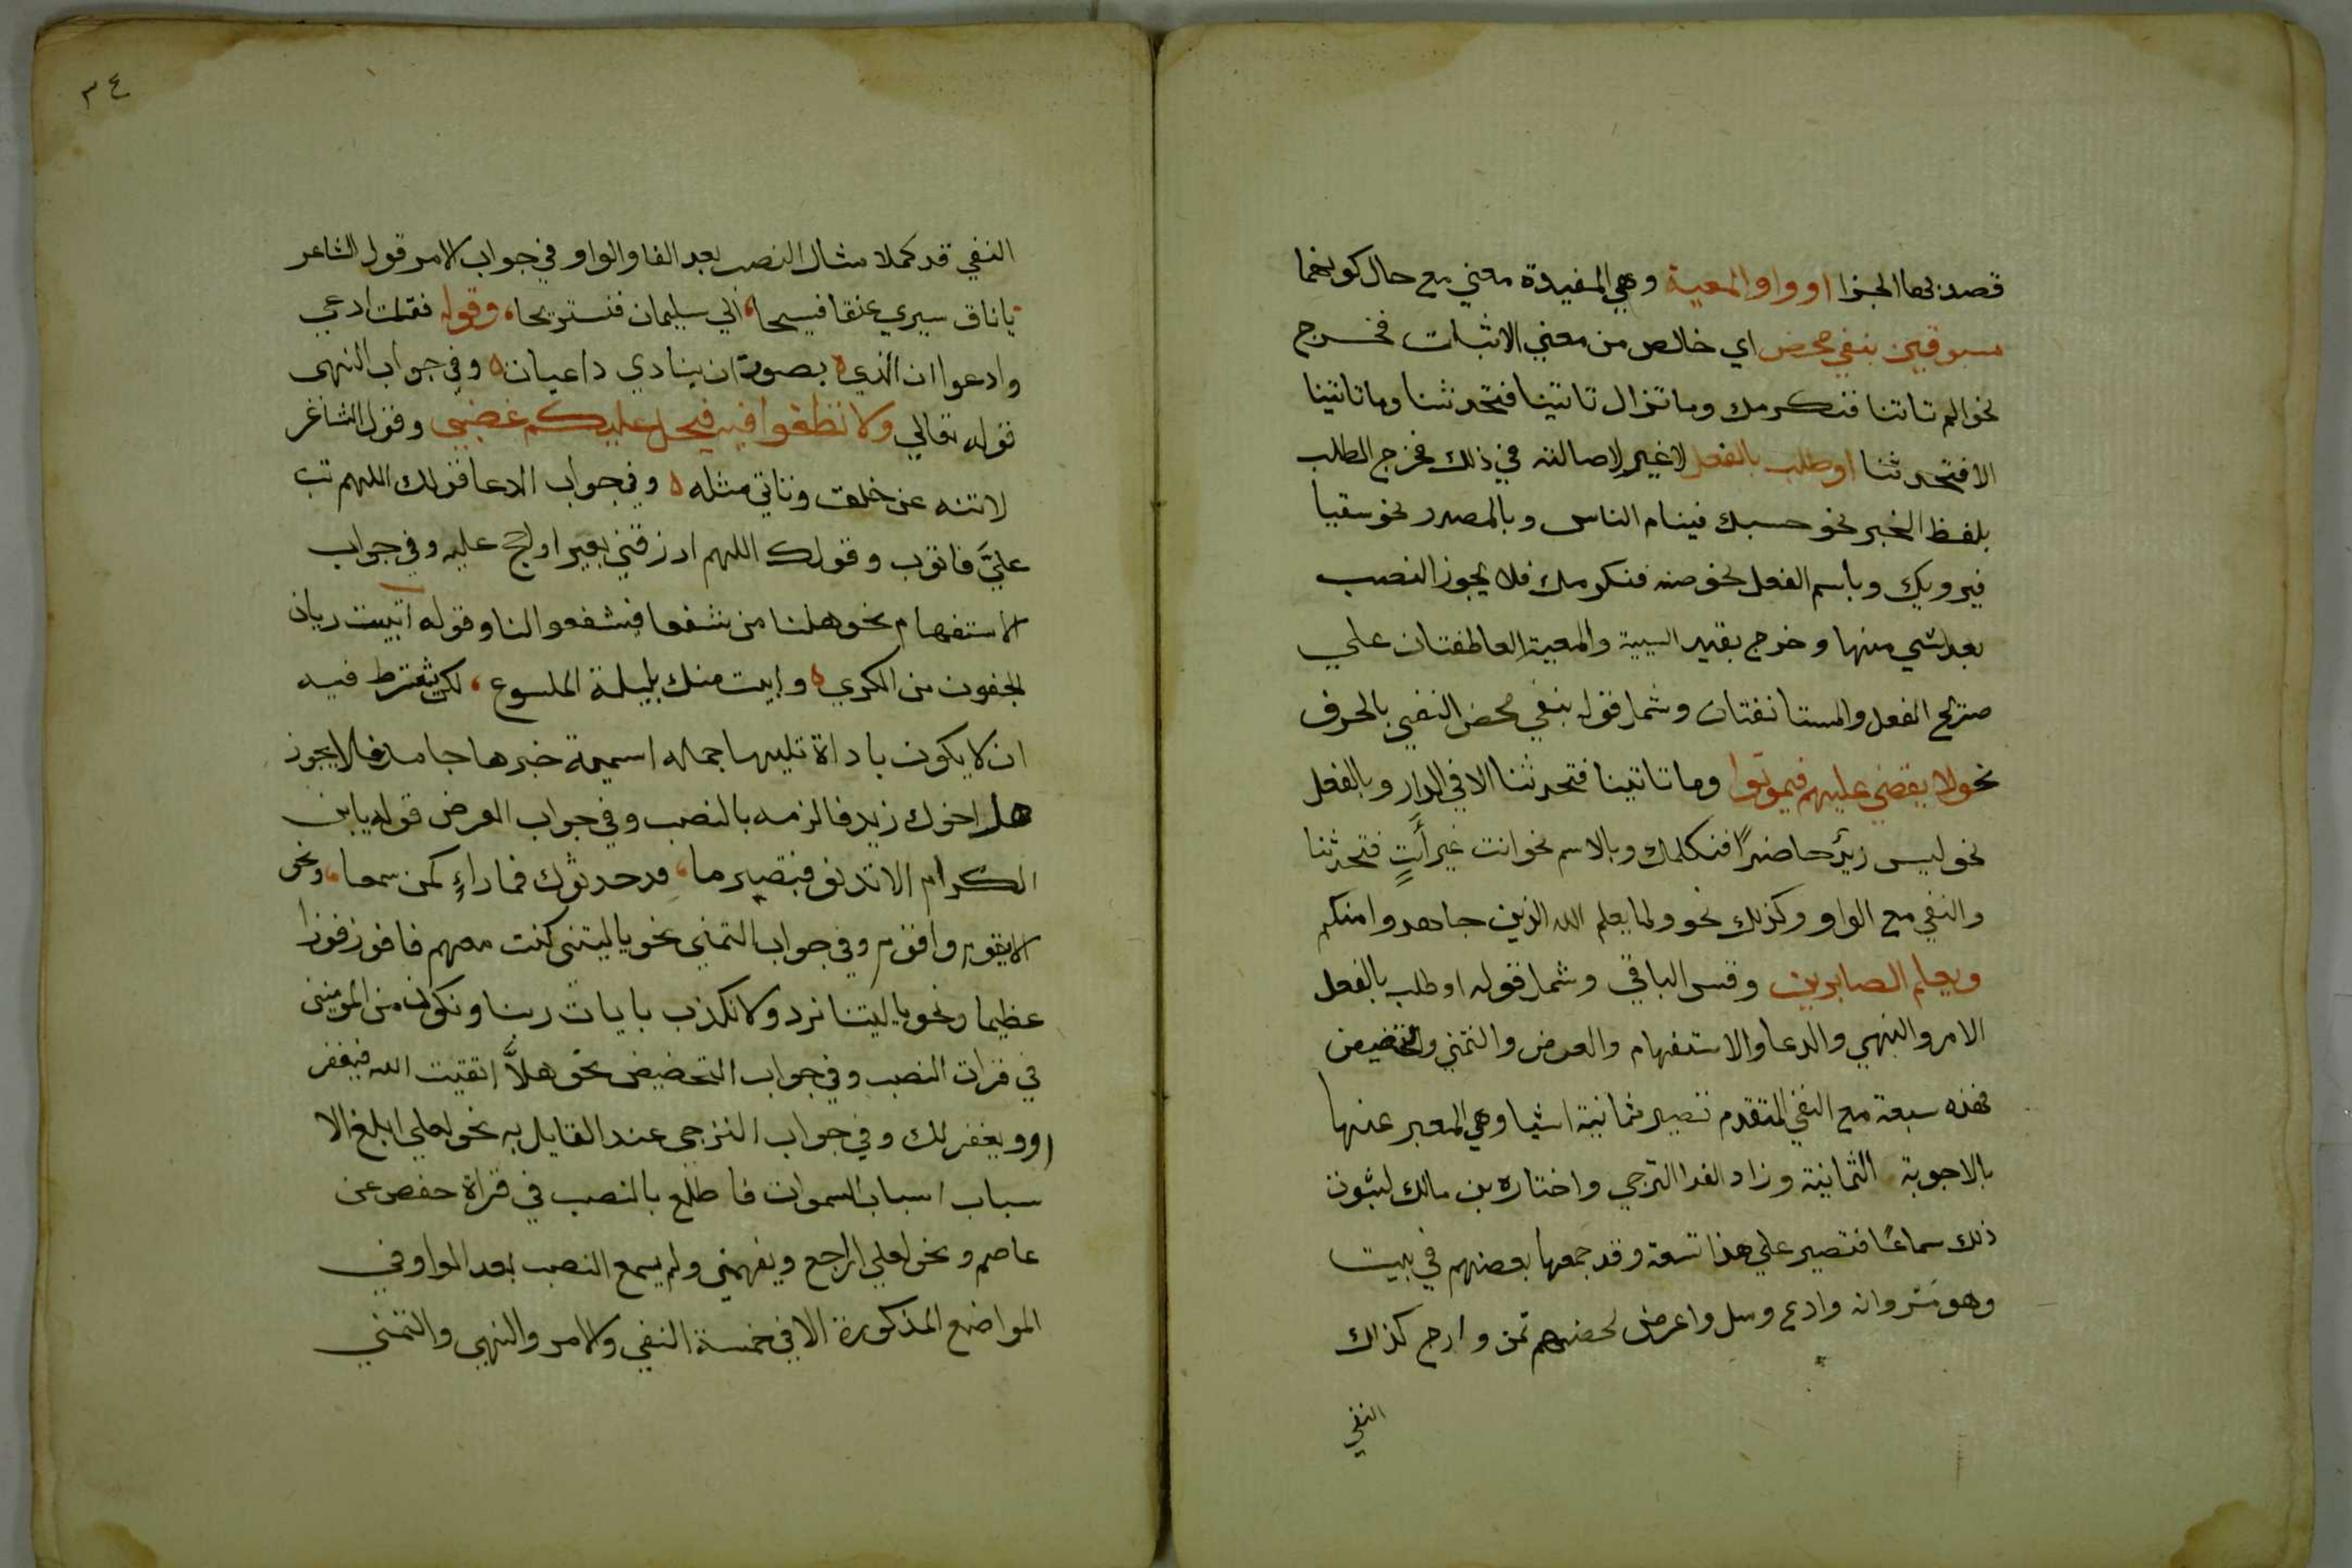 قصد بها الجزا او واو المعية وهي المفيدة معني مع حال كونهما
مسبوقين بنفي محض اي خالص من معني الاثبات فخرج
نحو الم تاتنا فنكرمك وما تزال تاتينا فتحدثنا وما تاتينا
الا فتحدثنا او طلب بالفعل لا غير لاصالته في ذلك فخرج الطلب
بلفظ الخبر نحو حسبك فينام الناس وبالمصدر نحو سقيا
فيرويك وباسم الفعل نحو صه فنكرمك فلا يجوز النصب
بعد شي منها وخرج بقيد السببية والمعية العاطفتان علي
صريح الفعل والمستانفتان وشمل قوله بنفي محض النفي بالحرف
نحو لا يقضي عليهم فيموتوا وما تاتينا فتحدثنا الا في الدار وبالفعل
نحو ليس زيدٌ حاضرًا فنكلمك وبالاسم نحو انت غير أتٍ فتحدثنا
والنفي مع الواو وكذلك نحو ولما يعلم الله الذين جاهدوا منكم
ويعلم الصابرين وقس الباقي وشمل قوله او طلب بالفعل
الامر والنهي والدعا والاستفهام والعرض والتمني والتخضيض
فهذه سبعة مع النفي المتقدم تصير ثمانية اشيا وهي المعبر عنها
بالاجوبة الثمانية وزاد الفرا الترجي واختاره بن مالك لثبوت
ذلك سماعًا فتصير علي هذا تسعة وقد جمعها بعضهم في بيت
وهو مُر وانه وادع وسل واعرض لحضهم تمن وارج كذاك
النفي
٣٤
النفي قد كملا مثال النصب بعد الفا والواو في جواب الامر قول الشاعر
يا ناق سيري عنقا فسيحا، الي سليمان فنستريحا، وقوله فقلت ادعي
وادعوا ان اندي ه بصوت ان ينادي داعيان ه وفي جواب النهى
قوله تعالي ولا تطغوا فيه فيحل عليكم غضبي وقول الشاعر
لا تنه عن خلق وتاتي مثله ه وفي جواب الدعا قولك اللهم تب
عليَّ فاتوب وقولك اللهم ارزقني بعيرا واحج عليه وفي جواب
الاستفهام نحو هل لنا من شفعا فيشفعوا لنا وقوله اتبيت ريان
الجفون من الكري ه وابيت منك بليلة الملسوع، لكن يشترط فيه
ان لا يكون باداة تليها جملة اسمية خبرها جامد فلا يجوز
هل اخوك زيد فالزمه بالنصب وفي جواب العرض قوله يا بن
الكرام الا تدنو فتبصر ما، قد حدثوك فما راءٍ كمن سمعا، ونحو
الا تقوم واقوم وفي جواب التمني نحو يا ليتني كنت معهم فافوز فوزا
عظيما ونحو يا ليتنا نرد ولا نكذب بايات ربنا ونكون من المومنين
في قرات النصب وفي جواب التحضيض نحو هلاَّ اتقيت الله فيغفر
او ويغفر لك وفي جواب الترجي عند القايل به نحو لعلي ابلغ الا
سباب اسباب السموات فاطلع بالنصب في قراة حفص عن
عاصم ونحو لعلي اراجع ويفهمني ولم يسمع النصب بعد الواو في
المواضع المذكورة الا في خمسة النفي والامر والنهي والتمني